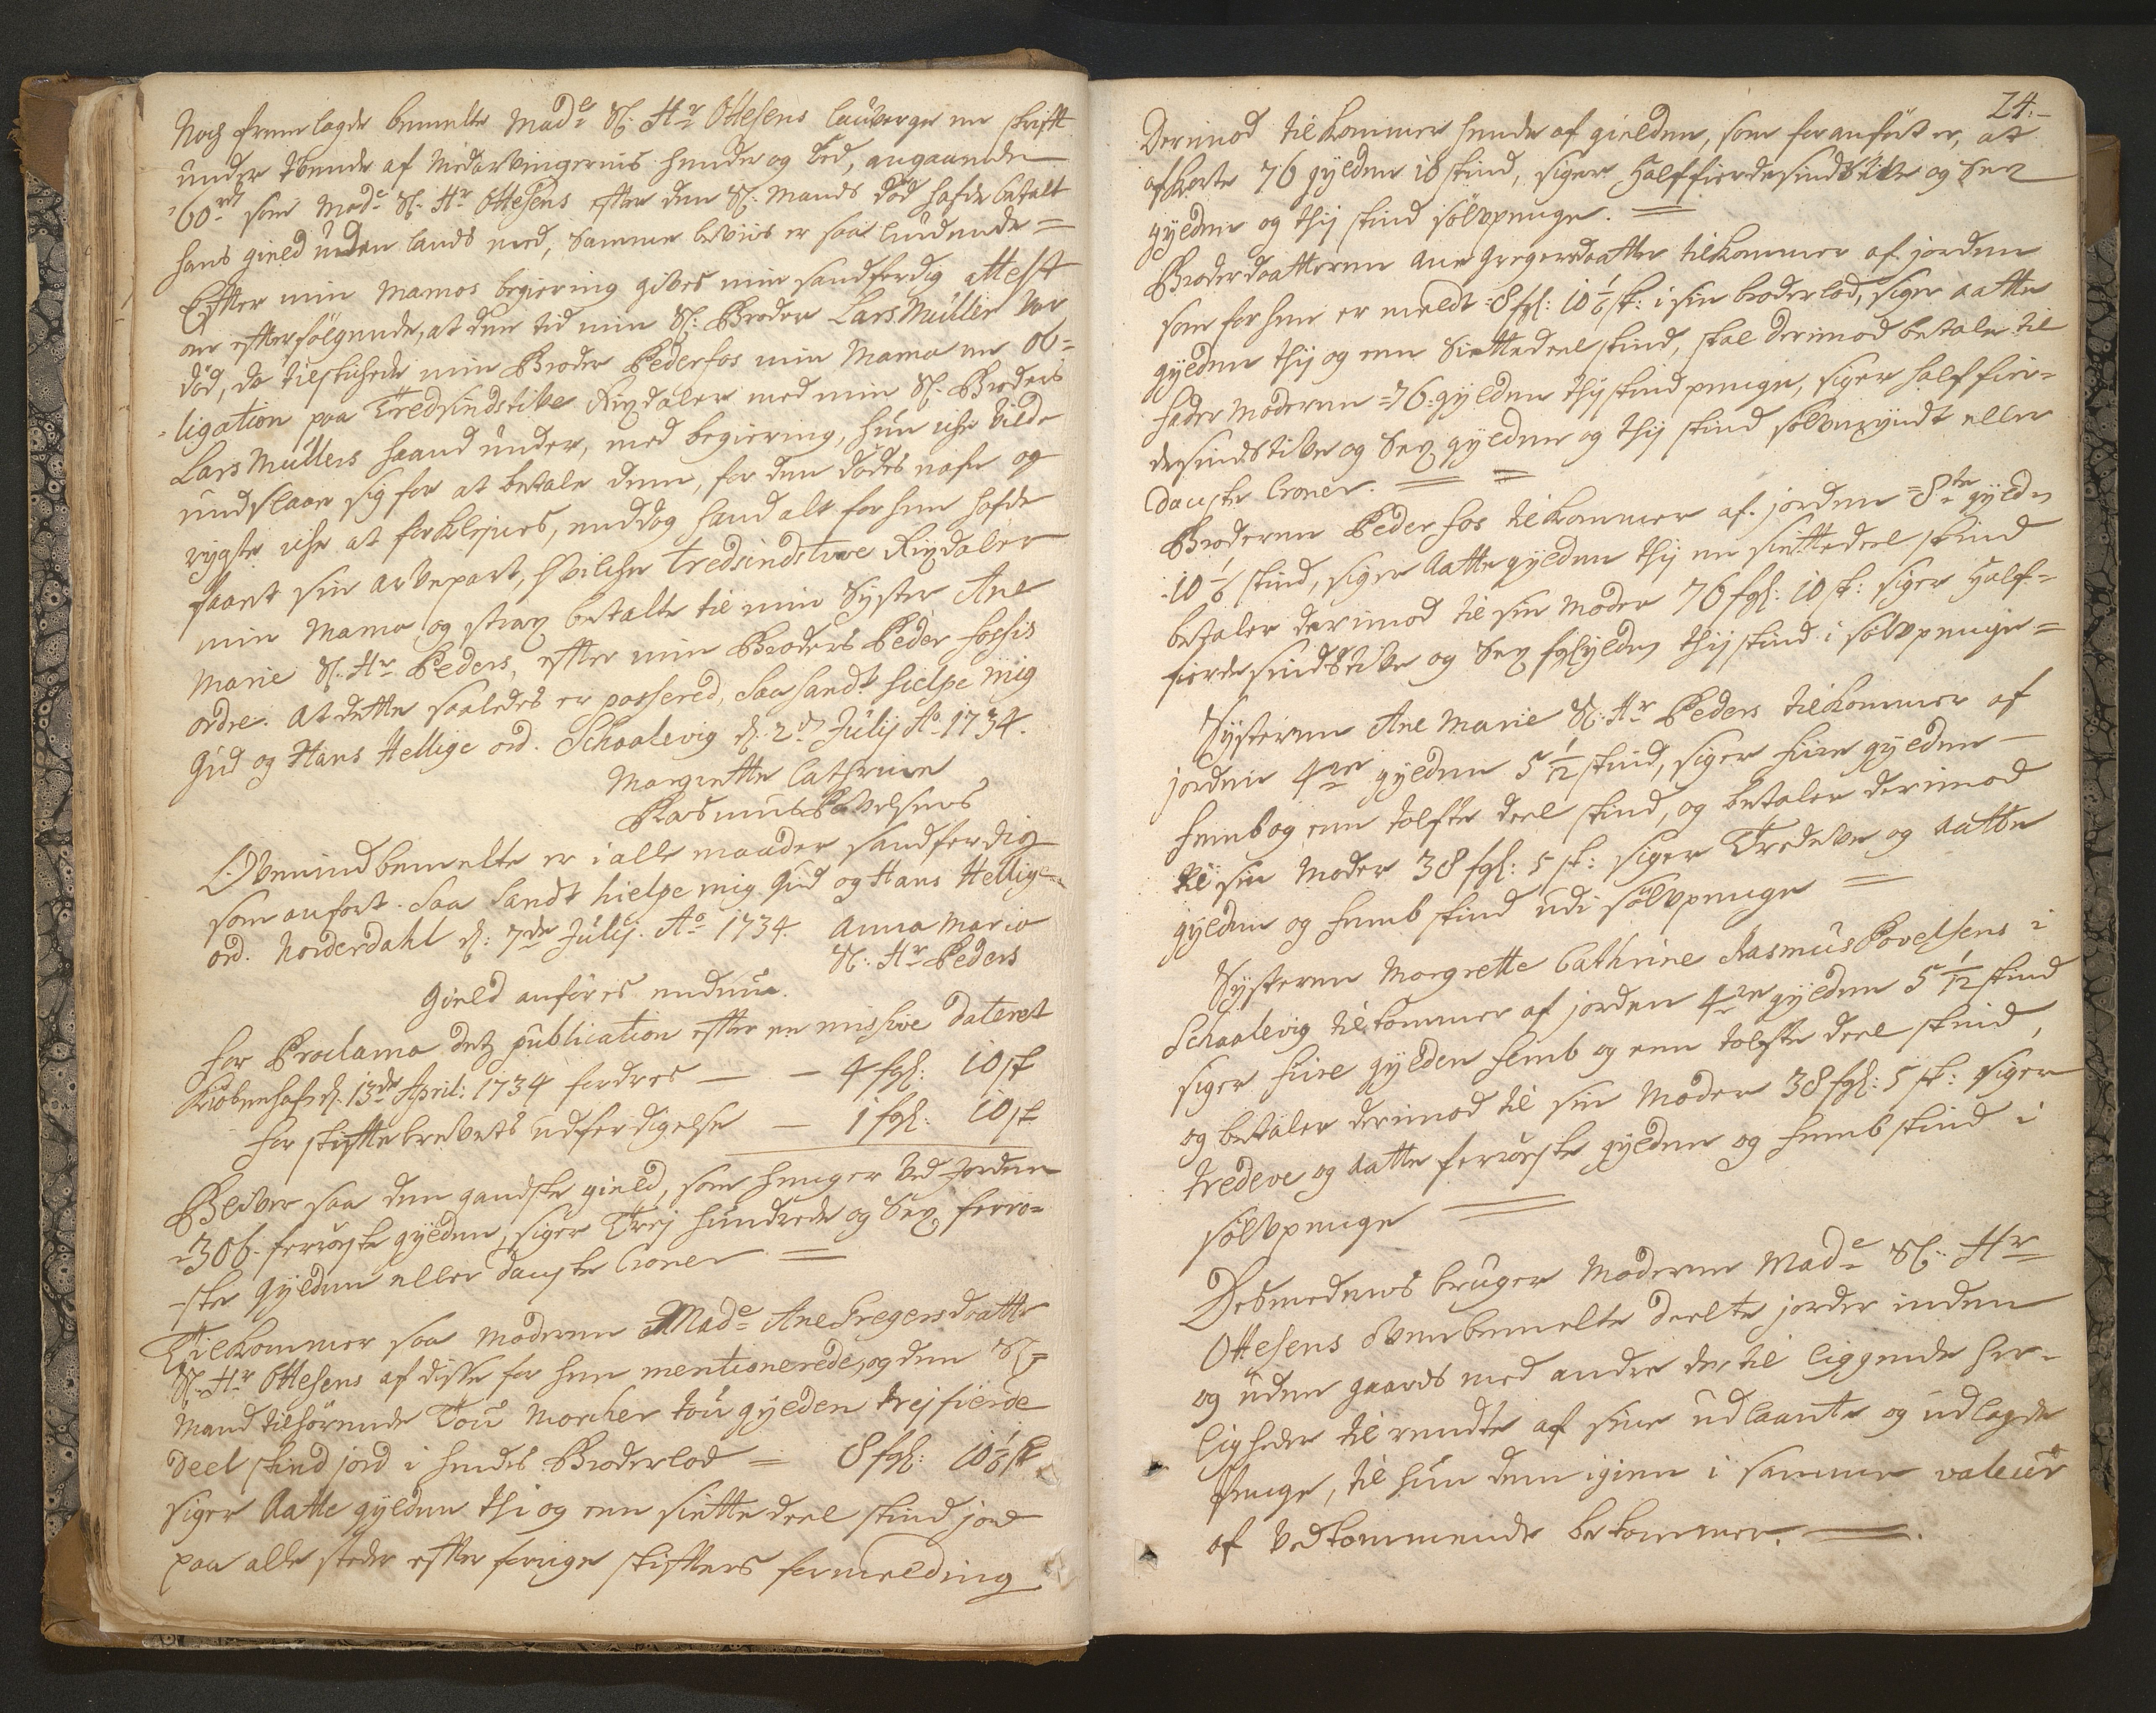 Noch fremlagde bemelte Mad:e Sl: Hr Ottesens lauverge en skrift
under tvende af Medarvingernis hender og Eed, angaaende
60 rd som Mad:e Sl: Hr Ottesens efter den Sl: Mands död hafde betalt
hans gield uden lands med, Samme bevis er saa liudende =
Efter min Mamas begiering gives min sandferdig attest
om efterfölgende, at den tid min Sl: Broder Lars Müller var
död, da tilskichede min Broder Peder Fos min Mama en ob=
=ligation paa Tredsindstive Rixdaler med min Sl: Broders
Lars Müllers haand under, med begiering, hun iche vilde
undslaae sig for at betale dem, for den dödes nafn og
rygte iche at forkleines, enddog hand alt forhen hafde
faaet sin arvepart, hvilche tredsindstive Rixdaler
min Mama og strax betalte til min Syster Ane
Marie Sl: Hr Peders, efter min Broders Peder Fosses
ordre. At dette saaledes er passered, Saa sandt hielpe mig
Gud og Hans Hellige ord. Schaalevig d. 2den Julij Ao 1734.
Margrette Cathrine
Rasmus Povelsens
Ovenindbemelte er i alle maader sandferdig
som anfört. Saa Sandt hielpe mig Gud og Hans Hellige
ord. Norderdahl d: 7de Julij. Ao 1734. Anna Maria
Sl: Hr Peders
Gield anföres endnu.
For Proclama dets publication efter en missive dateret
Kiöbenhafn d. 13de April: 1734 fordres — — 4 fgl: 10 sk
for skiftebrevets udferdigelse — 1 fgl: 10 sk
Bliver saa den gandske gield, som henger ved Jorden
=306. ferröeske gylden, siger Trej hundrede og Sex ferrö=
=ske Gylden eller danske Croner =
Tilkommer saa moderen Mad:e Ane Gregersdaatter
Sl: Hr Ottesens af disse for hen mentionerede, og den Sl:
Mand tilhörende Tou Morcher tou gylden trej fierde
deel skind jord i hendes Broderlod = 8 fgl: 10 1/6 sk
siger Aatte gylden thi og een siette deel skind jord
paa alle steder efter forige skifters formelding
24.
Derimod tilkommer hende af gielden, som for anfört er, at
afkorte 76 gylden 10 skind, siger Halffierdesindstive og Sex
gylden og thij skind sölvpenge. =
Broderdaatteren Ane Gregersdaatter tilkommer af jorden
som forhen er meldt =8 fgl: 10 1/6 sk: i sin broderlod, siger aatte
gylden thij og een Siettedeel skind, skal derimod betale til
fader moderen =76. gylden thij skind penge, siger halffier=
desindstive og Sex gylden og thij skind sölvmyndt eller
danske Croner. = =
Broderen Peder Fos tilkommer af jorden =8te gylden
10 1/6 skind, siger Aatte gylden thij en siettedeel skind
betaler derimod til sin Moder 76 fgl: 10 sk: siger Half=
fierdesindstive og Sex fgl gylden thij skind i sölvpenge =
Systeren Ane Marie Sl: Hr Peders tilkommer af
jorden 4re gylden 5 1/12 skind, siger fiire gylden —
femb og een tolfte deel skind, og betaler derimod
til sin Moder 38 fgl: 5 sk: siger Tredeve og Aatte
gylden og femb skind udi sölvpenge =
Systeren Margrette Cathrine Rasmus Povelsens i
Schaalevig tilkommer af jorden 4re gylden 5 1/12 skind
siger fiire gylden femb og een tolfte deel skind,
og betaler derimod til sin Moder 38 fgl: 5 sk: siger
tredeve og Aatte ferröeske gylden og femb skind i
sölvpenge =
Desmedens bruger Moderen Mad:e Sl: Hr
Ottesens ovenbemelte deelte jorder inden
og uden gaards med andre der til liggende her=
ligheder til rendte af sine udlaante og udlagde
Penge, til hun dem igien i samme valeur
af Vedkommende bekommer. =